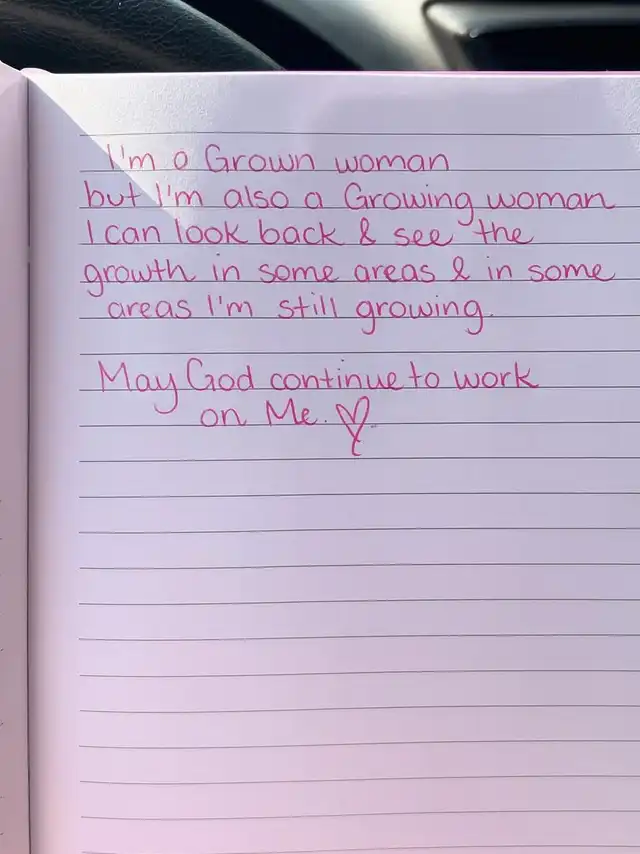 I'm a Grown woman
but I'm also a Growing woman
I can look back & see the
growth in some areas & in some
areas I'm still growing.
May God continue to work
on Me. ♡